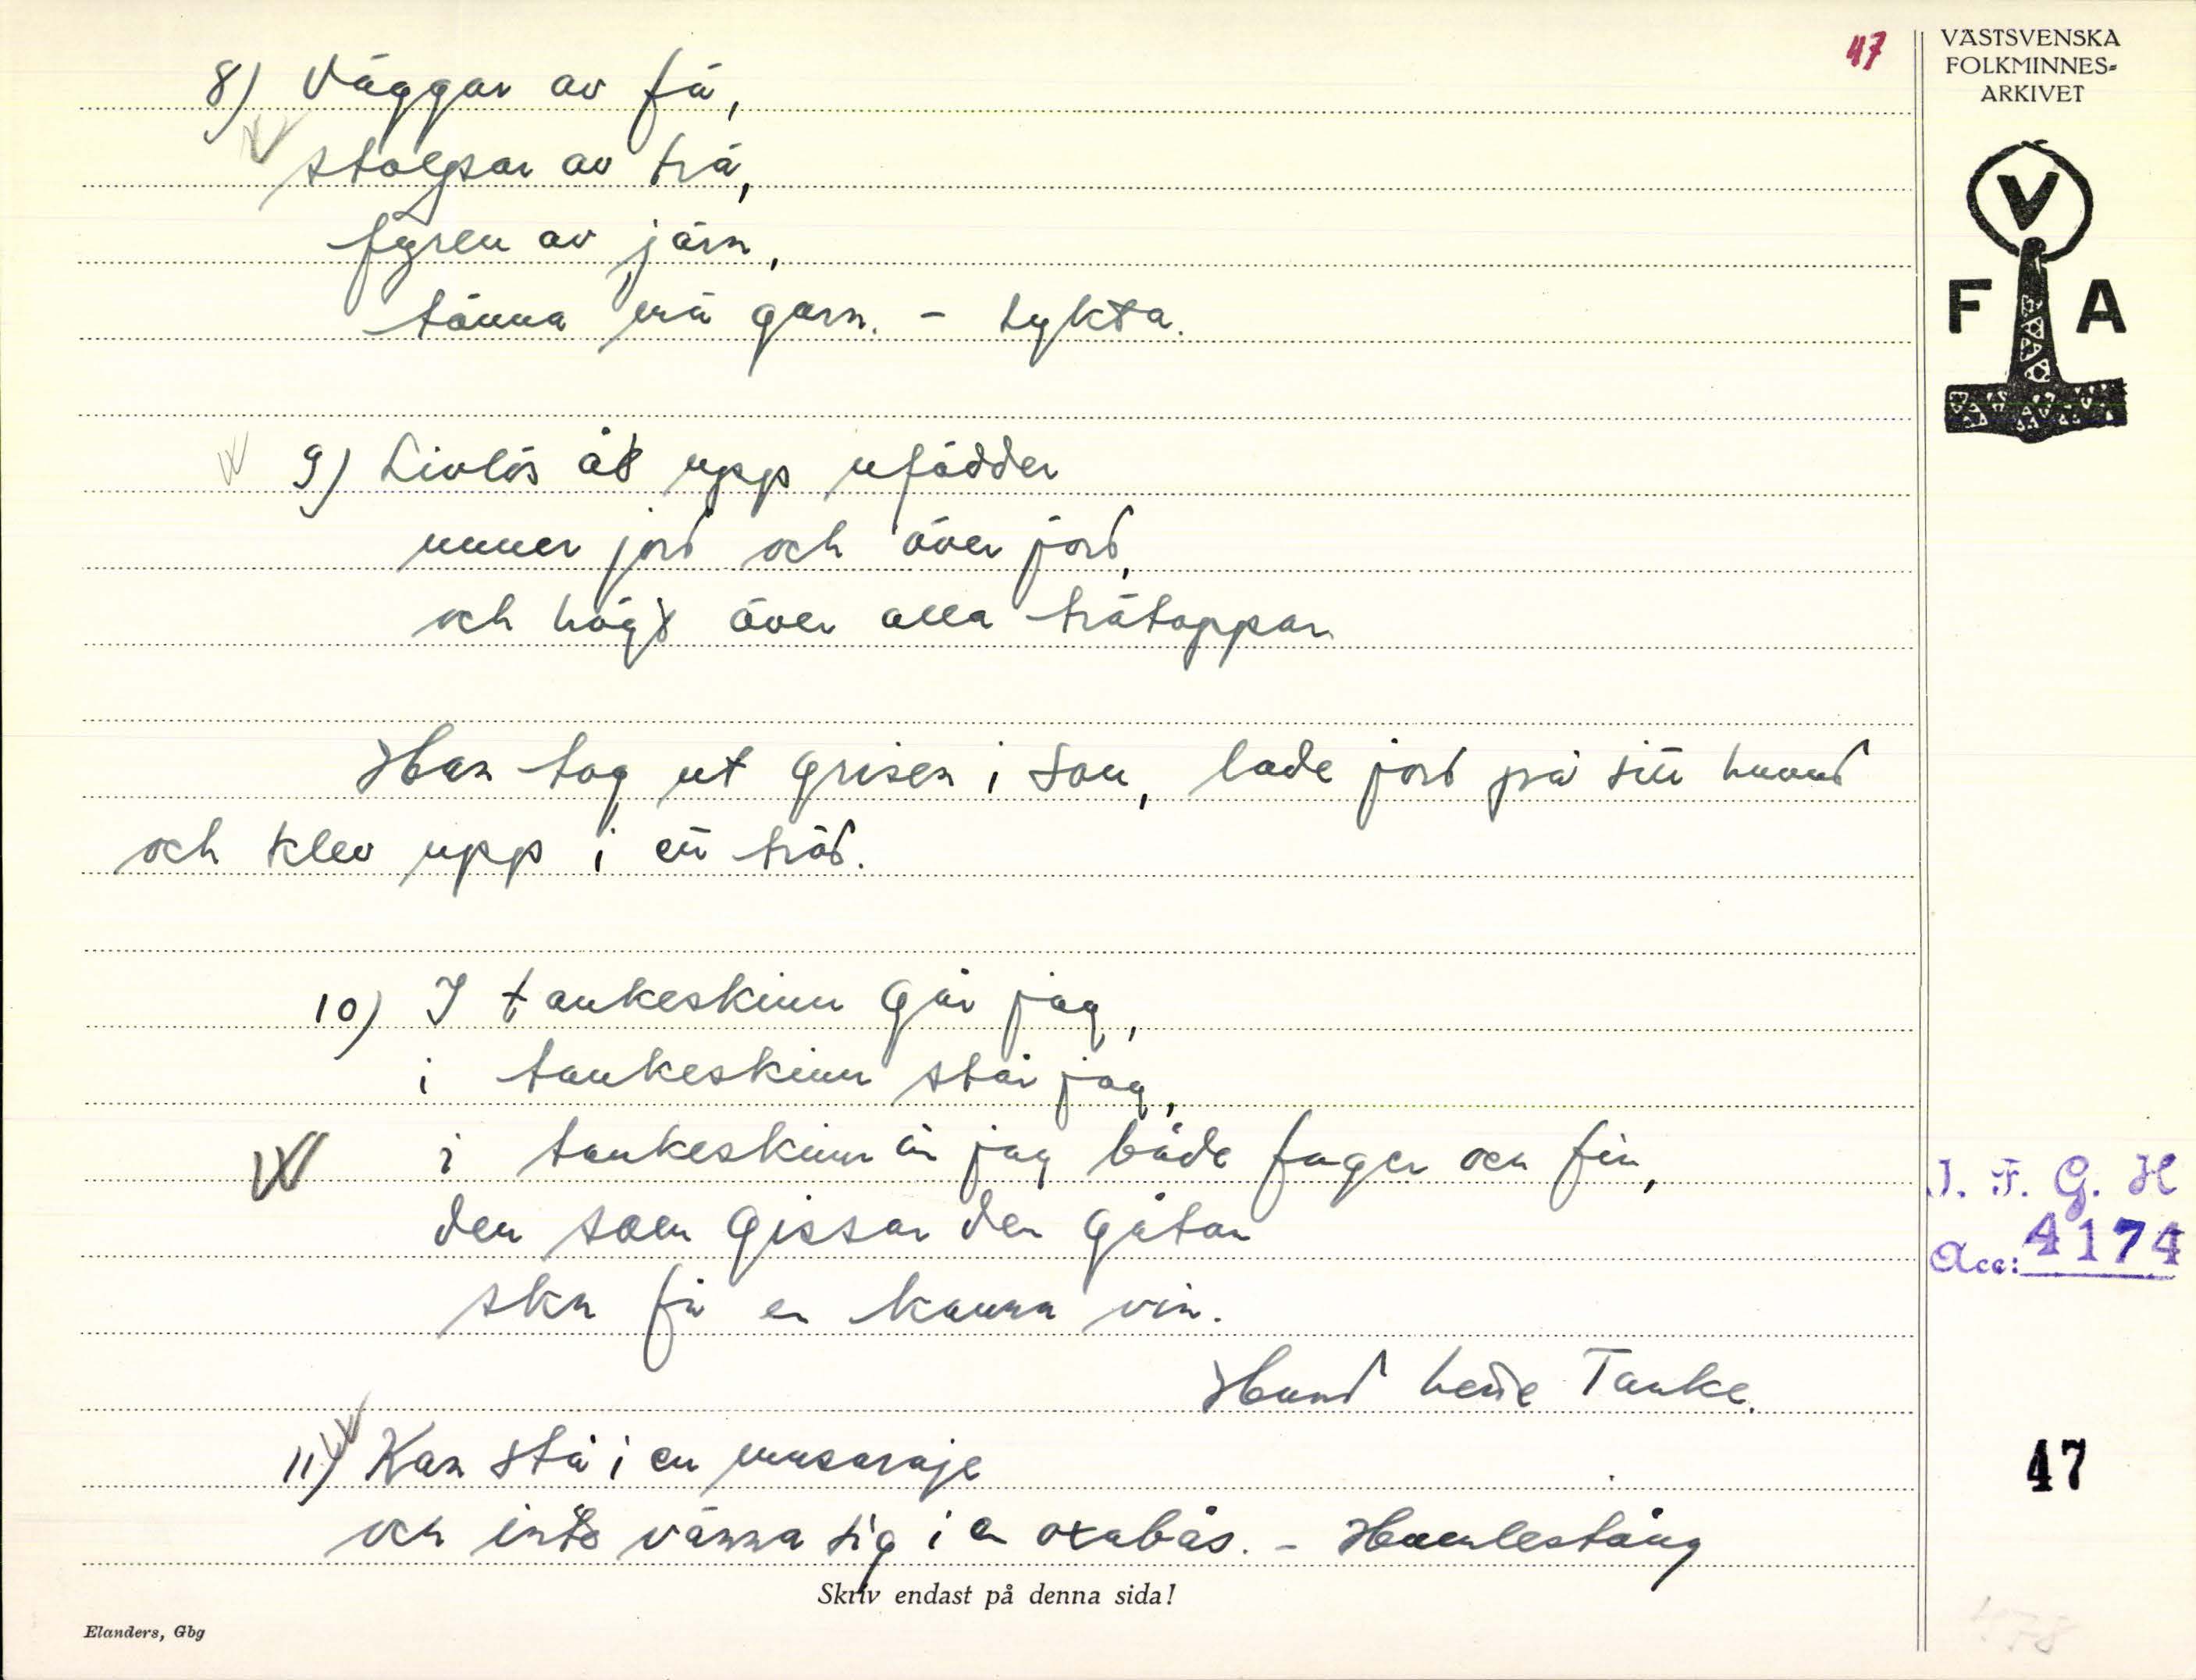 47
VÄSTSVENSKA
FOLKMINNES-
ARKIVET
V
F A
8) Väggar av fä,
stolpar av trä,
fyren av järn,
tänna må garn. - Lykta.
9) Livlös åt upp ufödder
unner jord och över jord,
och högt över alla trätoppar
Han tog ut grisen i son, lade jord på sitt huvud
och klev upp i ett träd.
10) I tankeskinn går jag,
i tankeskinn står jag,
i tankeskinn är jag både fager och fin,
den som gissar den gåtan
ska få en kanna vin.
Hund hette Tanke.
11) Kan stå i en
och inte vänna sig i en oxabås. - Humlestång
Skriv endast på denna sida!
Elanders, Gbg
I. F. G. H
Acc: 4174
47